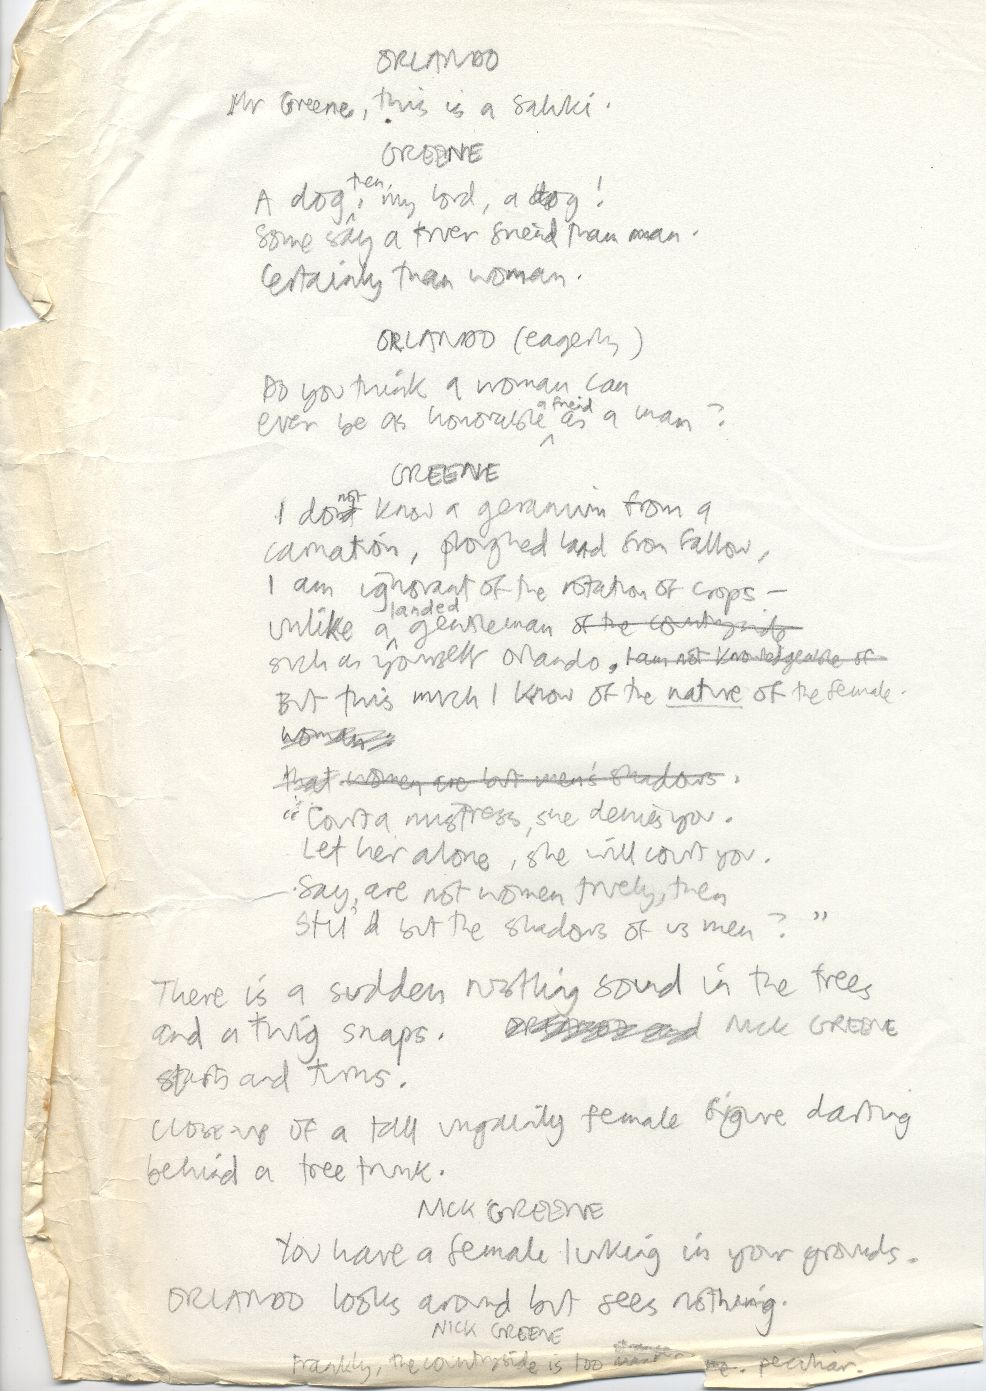 ORLANDO
Mr Greene, this is a Saluki.
GREENE
A dog, then, my lord, a dog!
Some say a truer freind than man.
Certainly than woman.
ORLANDO (eagerly)
Do you think a woman can
ever be as honorable a freind as a man?
GREENE
I do not know a geranium from a
carnation, ploughed land from fallow,
I am ignorant of the rotation of crops –
unlike a landed gentleman of the countryside
such as yourself Orlando. I am not knowledgeable of
But this much I know of the nature of the female.
woman.
that women are but men's shadows.
"Court a mistress, she denies you.
Let her alone, she will court you.
Say, are not women truely, then
Stil'd but the shadows of us men?"
There is a sudden rustling sound in the trees
and a twig snaps. ORLANDO and NICK GREENE
starts and turns.
Close-up of a tall ungainly female figure darting
behind a tree trunk.
NICK GREENE
You have a female lurking in your grounds.
ORLANDO looks around but sees nothing.
NICK GREENE
Frankly, the countryside is too peculiar.